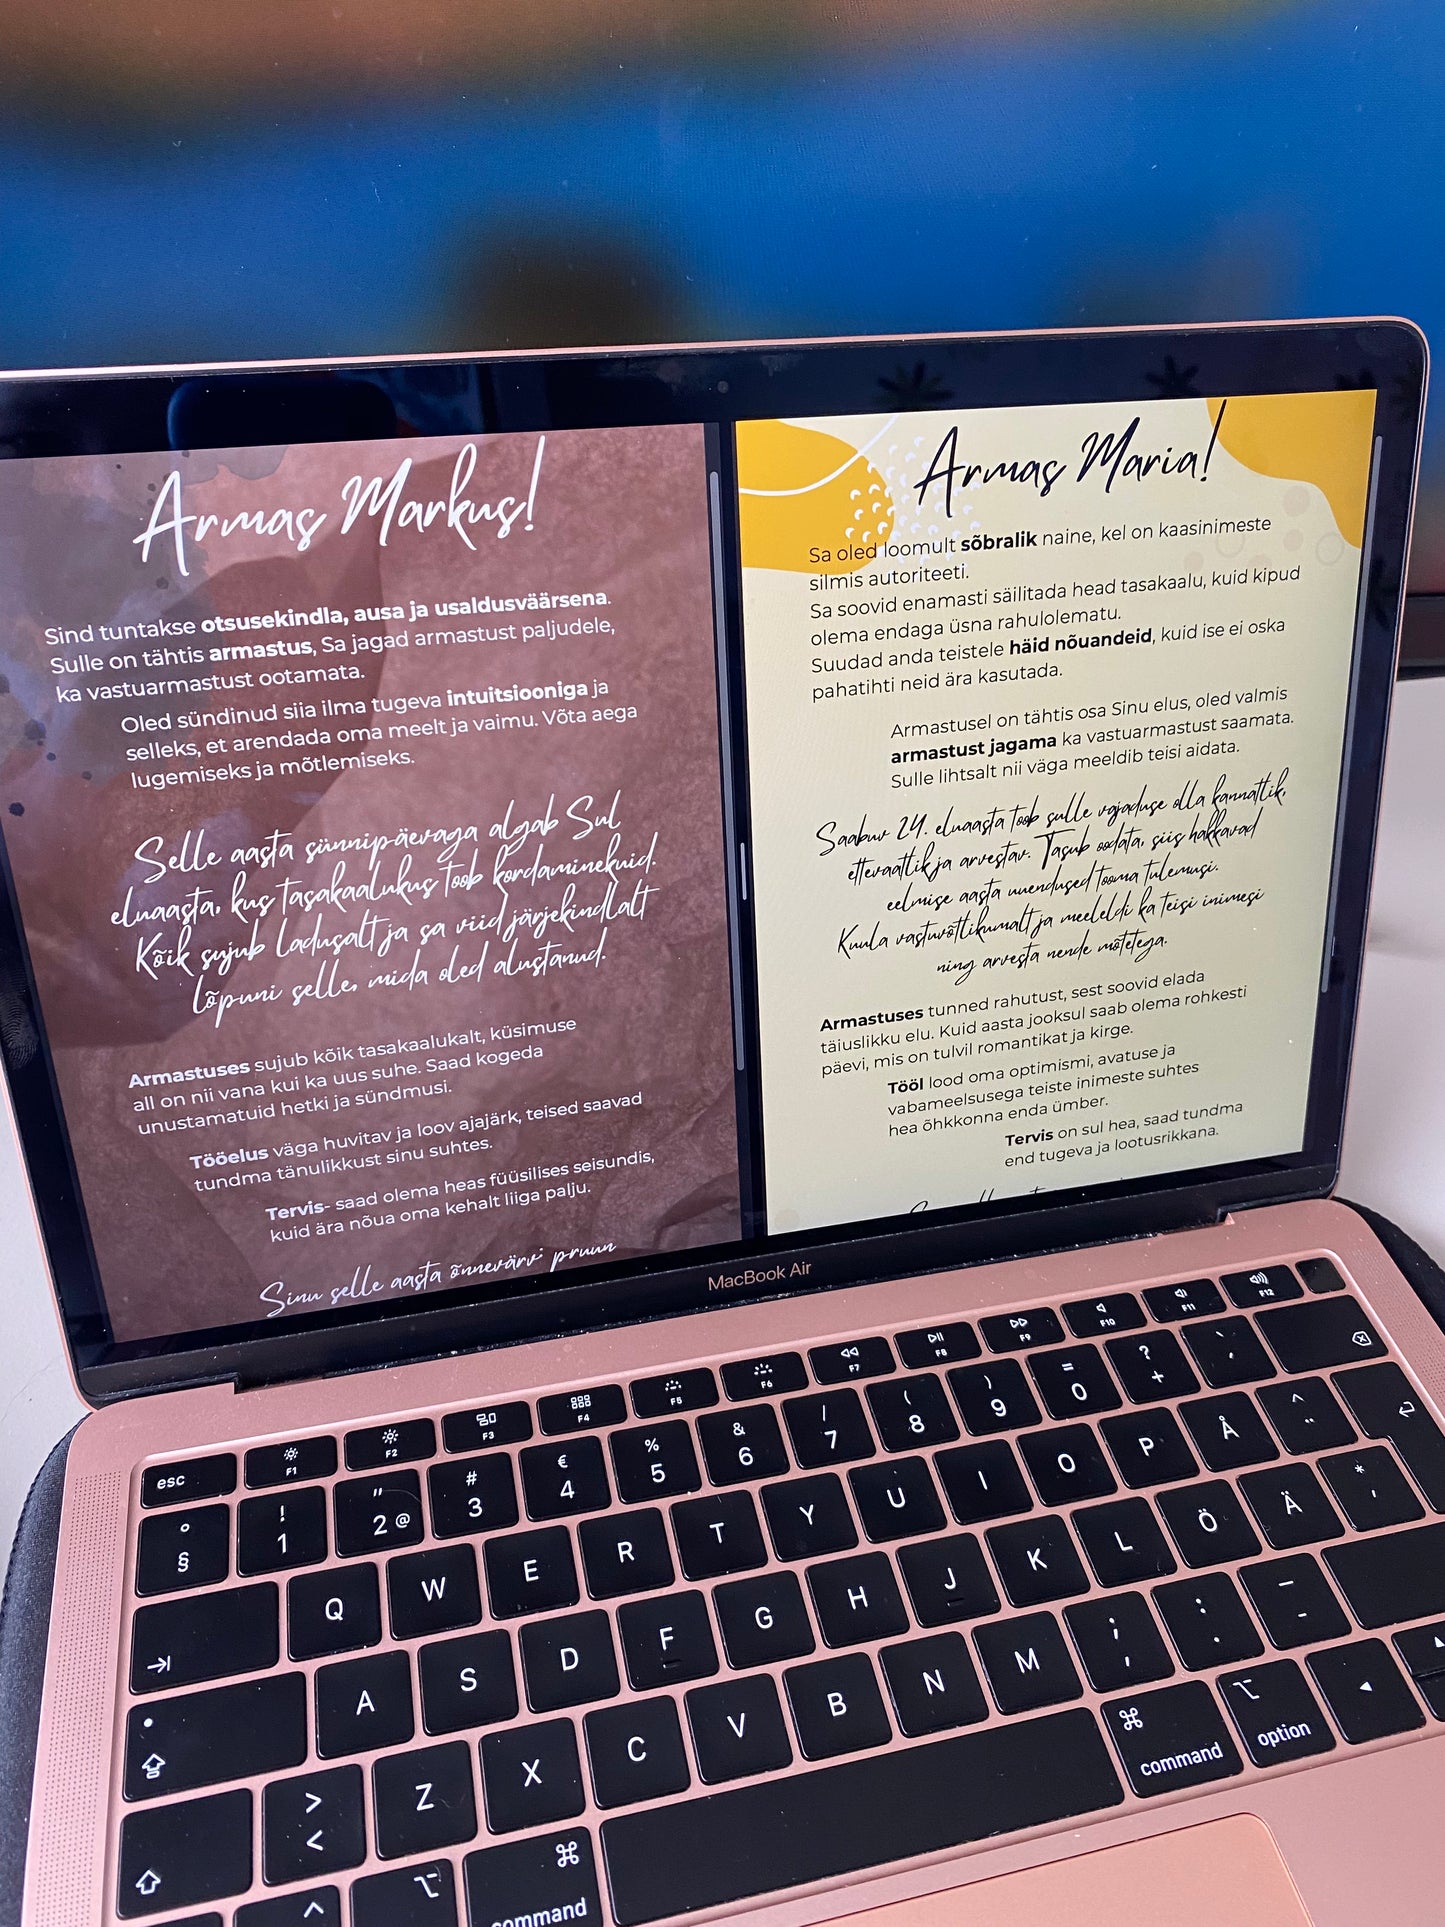 Armas Markus!
Sind tuntakse otsusekindla, ausa ja usaldusväärsena.
Sulle on tähtis armastus, Sa jagad armastust paljudele,
ka vastuarmastust ootamata.
Oled sündinud siia ilma tugeva intuitsiooniga ja
selleks, et arendada oma meelt ja vaimu. Võta aega
lugemiseks ja mõtlemiseks.
Selle aasta sünnipäevaga algab Sul
eluaasta, kus tasakaalukus toob kordaminekuid.
Kõik sujub ladusalt ja sa viid järjekindlalt
lõpuni selle, mida oled alustanud.
Armastuses sujub kõik tasakaalukalt, küsimuse
all on nii vana kui ka uus suhe. Saad kogeda
unustamatuid hetki ja sündmusi.
Tööelus väga huvitav ja loov ajajärk, teised saavad
tundma tänulikkust sinu suhtes.
Tervis- saad olema heas füüsilises seisundis,
kuid ära nõua oma kehalt liiga palju.
Sinu selle aasta õnnevärvi pruun
Armas Maria!
Sa oled loomult sõbralik naine, kel on kaasinimeste
silmis autoriteeti.
Sa soovid enamasti säilitada head tasakaalu, kuid kipud
olema endaga üsna rahulolematu.
Suudad anda teistele häid nõuandeid, kuid ise ei oska
pahatihti neid ära kasutada.
Armastusel on tähtis osa Sinu elus, oled valmis
armastust jagama ka vastuarmastust saamata.
Sulle lihtsalt nii väga meeldib teisi aidata.
Saabuv 24. eluaasta toob sulle vajaduse olla kannatlik,
ettevaatlik ja arvestav. Tasub oodata, siis hakkavad
eelmise aasta uuendused tooma tulemusi.
Kuula vastuvõtlikumalt ja meeleldi ka teisi inimesi
ning arvesta nende mõtetega.
Armastuses tunned rahutust, sest soovid elada
täiuslikku elu. Kuid aasta jooksul saab olema rohkesti
päevi, mis on tulvil romantikat ja kirge.
Tööl lood oma optimismi, avatuse ja
vabameelsusega teiste inimeste suhtes
hea õhkkonna enda ümber.
Tervis on sul hea, saad tundma
end tugeva ja lootusrikkana.
MacBook Air
esc F1 F2 F3 F4 F5 F6 F7 F8 F9 F10 F11 F12
° § ! 1 " 2 @ # 3 € 4 % 5 & 6 / 7 ( 8 ) 9 = 0 ? + ` ´
Q W E R T Y U I O P Å ^ ¨
A S D F G H J K L Ö Ä * '
> < Z X C V B N M ; , : . _ -
^ ⌥ ⌘ command ⌘ command ⌥ option